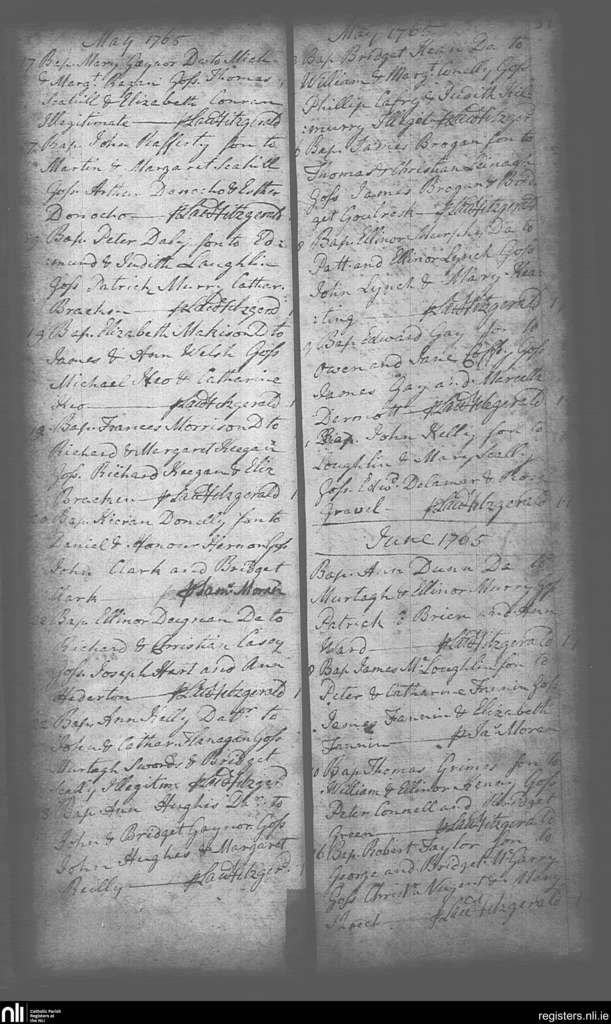 May 1765
17 Bap. Mary Gaynor Da to Mich.
& Margt. Regan Goss. Thomas
Scahill & Elizabeth Conran
Illegitimate — p Law Fitzgerald
Bap. John Rafferty son to
Martin & Margaret Scahill
Goss. Arthur Donocho & Esther
Donocho — p Law Fitzgerald
Bap. Peter Daly son to Ed:
:mund & Judith Laughlin
Goss Patrick Murry Cathar.
Bracken — p Law Fitzgerd
19 Bap. Elizabeth Makison D to
James & Ann Welsh Goss
Michael Heo & Catharine
Heo — p Law Fitzgerald 1
Bap. Frances Morrison D to
Richard & Margaret Keegan
Goss. Richard Keegan & Eliz
Bracken — p Law Fitzgerald 1
Bap. Kieran Donelly son to
Daniel & Honour Hernon Goss
John Clark and Bridget
Clark — p Jams. Moran
Bap. Ellinor Deegnan Da to
Richard & Christian Casey
Goss. Joseph Hart and Ann
Hederton — p Law Fitzgerald 1
22 Bap. Ann Kelly Datr. to
John & Catharn Flanagan Goss
Murtagh Swords & Bridget
Scally Illegitim p Law Fitzgerd
Bap. Ann Hughes Dtr. to
John & Bridget Gaynor Goss
John Hughes & Margaret
Reilly — p Law Fitzgerd.
May 1765
Bap. Bridget Kean Da to
William & Margt Conelly Goss
Phillip Cafry & Judith Kil:
:murry Illegit p Law Fitzger
Bap. Jadies Brogan son to
Thomas & Christian Leinagh
Goss James Brogan & Brid
get Goulrick — p Law Fitzgerald
8 Bap. Ellinor Murphy Da to
Patt: and Ellinor Lynch Goss
John Lynch & Mary Kea
:ting — p Law Fitzgerald 1
Bap. Edward Gay son to
Owen and Jane Coffy Goss
James Gay and Marcella
Dermott — p Law Fitzgerald 1
Bap. John Kelly son to
Loughlin & Mary Scally
Goss. Edwd. Delamar & Rose
Gravel — p Law Fitzgerald 1
June 1765
Bap. Ann Dunn Da to
Murtagh & Ellinor Murry Goss
Patrick o Brien and Ann
Ward — p Law Fitzgerald 1
8 Bap. James McLoughlin son to
Peter & Catharine Fannin Goss
James Fannin & Elizabeth
Fannin — p Jas. Moran
Bap. Thomas Grimes son to
William & Ellinor Heney Goss
Peter Connell and Bridget
Green — p Law Fitzgerald
16 Bap. Robert Taylor son to
George and Bridget McGarry
Goss Christn. Nugent & Mary
— p Law Fitzgerald 1
nli
Catholic Parish
Registers at
the NLI
registers.nli.ie